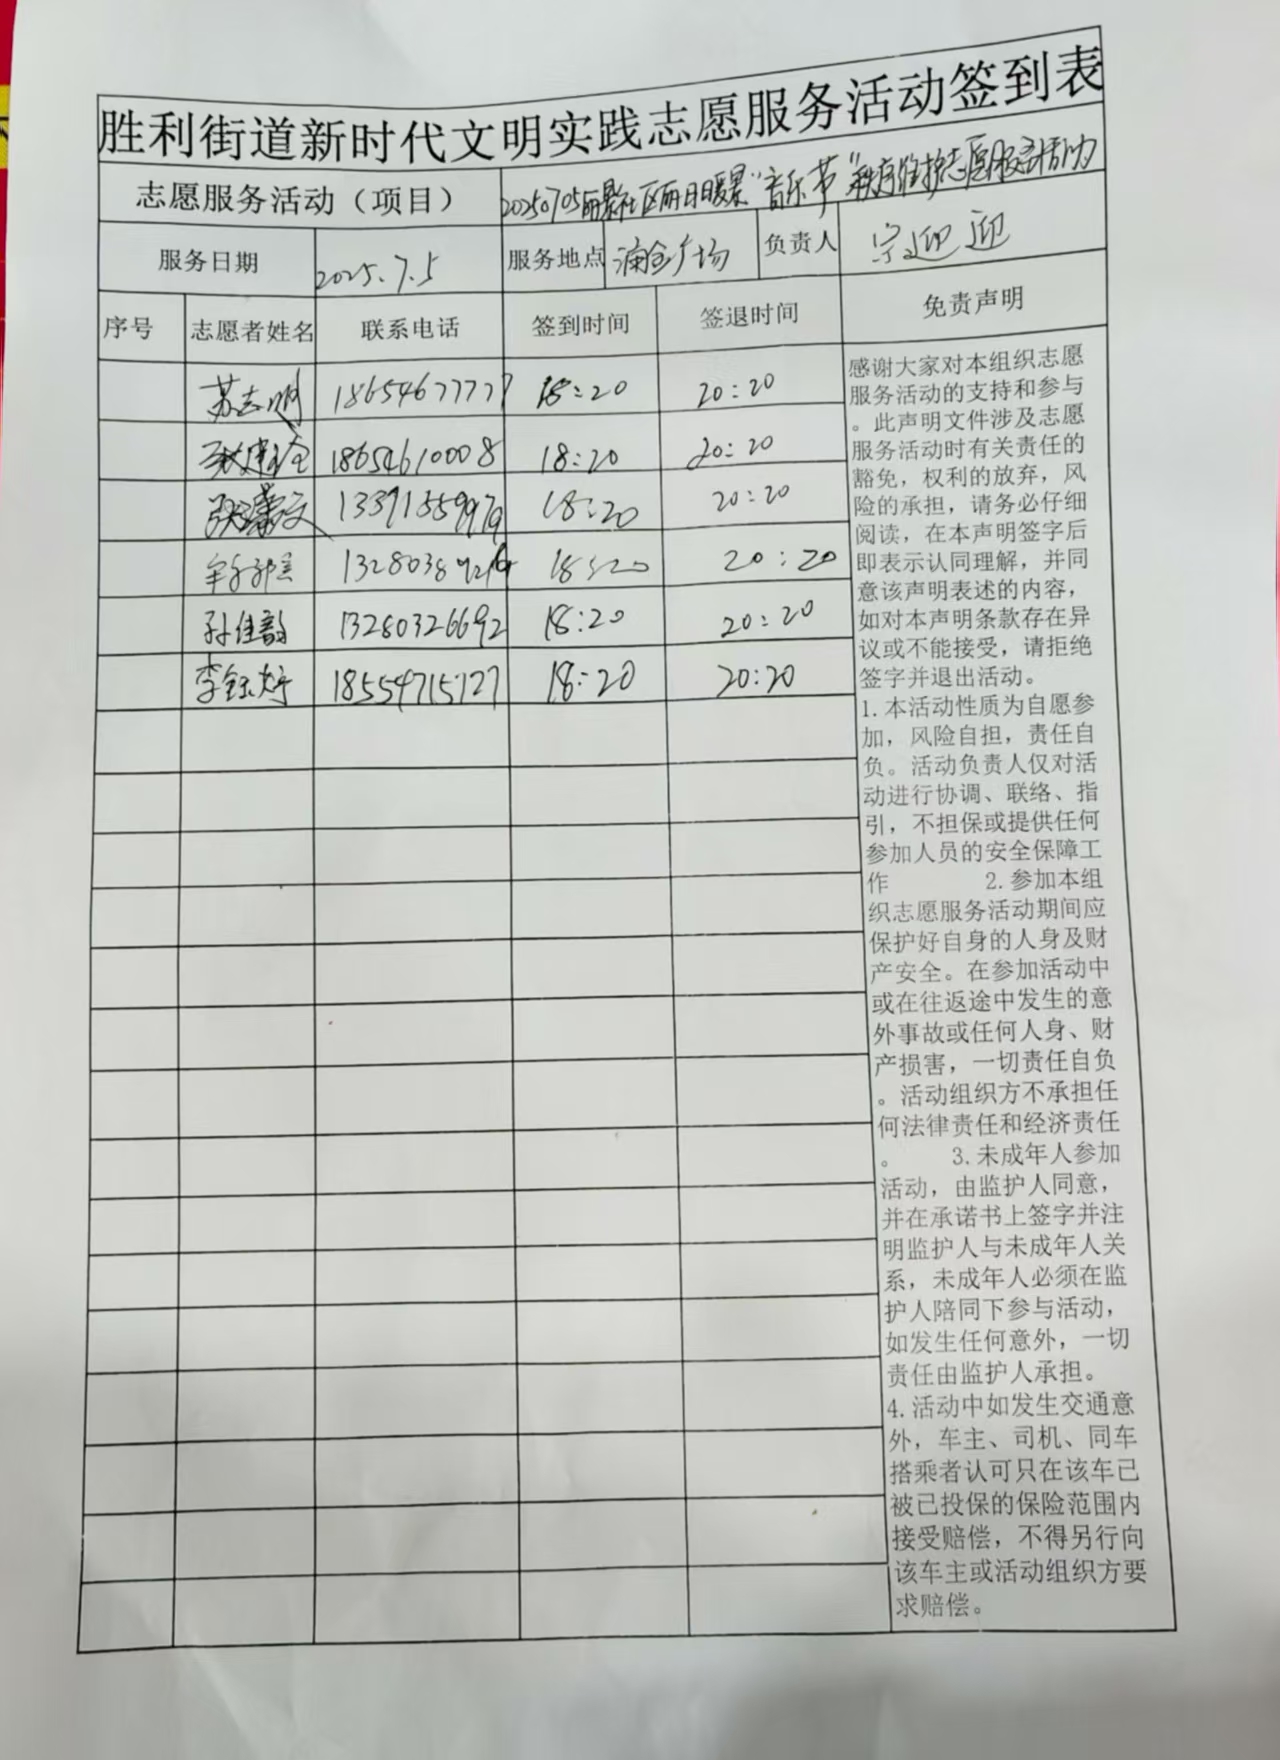 胜利街道新时代文明实践志愿服务活动签到表
志愿服务活动（项目） 20250705丽景社区丽日暖景“音乐节”秩序维护志愿服务活动
服务日期 2025.7.5 服务地点 浦金广场 负责人 宗迎迎
序号 志愿者姓名 联系电话 签到时间 签退时间 免责声明
苏志明 18654677777 18:20 20:20
18654610008 18:20 20:20
18:20 20:20
18:20 20:20
孙佳韵 13280326692 18:20 20:20
李 18554715727 18:20 20:20
感谢大家对本组织志愿
服务活动的支持和参与
。此声明文件涉及志愿
服务活动时有关责任的
豁免，权利的放弃，风
险的承担，请务必仔细
阅读，在本声明签字后
即表示认同理解，并同
意该声明表述的内容，
如对本声明条款存在异
议或不能接受，请拒绝
签字并退出活动。
1.本活动性质为自愿参
加，风险自担，责任自
负。活动负责人仅对活
动进行协调、联络、指
引，不担保或提供任何
参加人员的安全保障工
作 2.参加本组
织志愿服务活动期间应
保护好自身的人身及财
产安全。在参加活动中
或在往返途中发生的意
外事故或任何人身、财
产损害，一切责任自负
。活动组织方不承担任
何法律责任和经济责任
。 3.未成年人参加
活动，由监护人同意，
并在承诺书上签字并注
明监护人与未成年人关
系，未成年人必须在监
护人陪同下参与活动，
如发生任何意外，一切
责任由监护人承担。
4.活动中如发生交通意
外，车主、司机、同车
搭乘者认可只在该车已
被已投保的保险范围内
接受赔偿，不得另行向
该车主或活动组织方要
求赔偿。